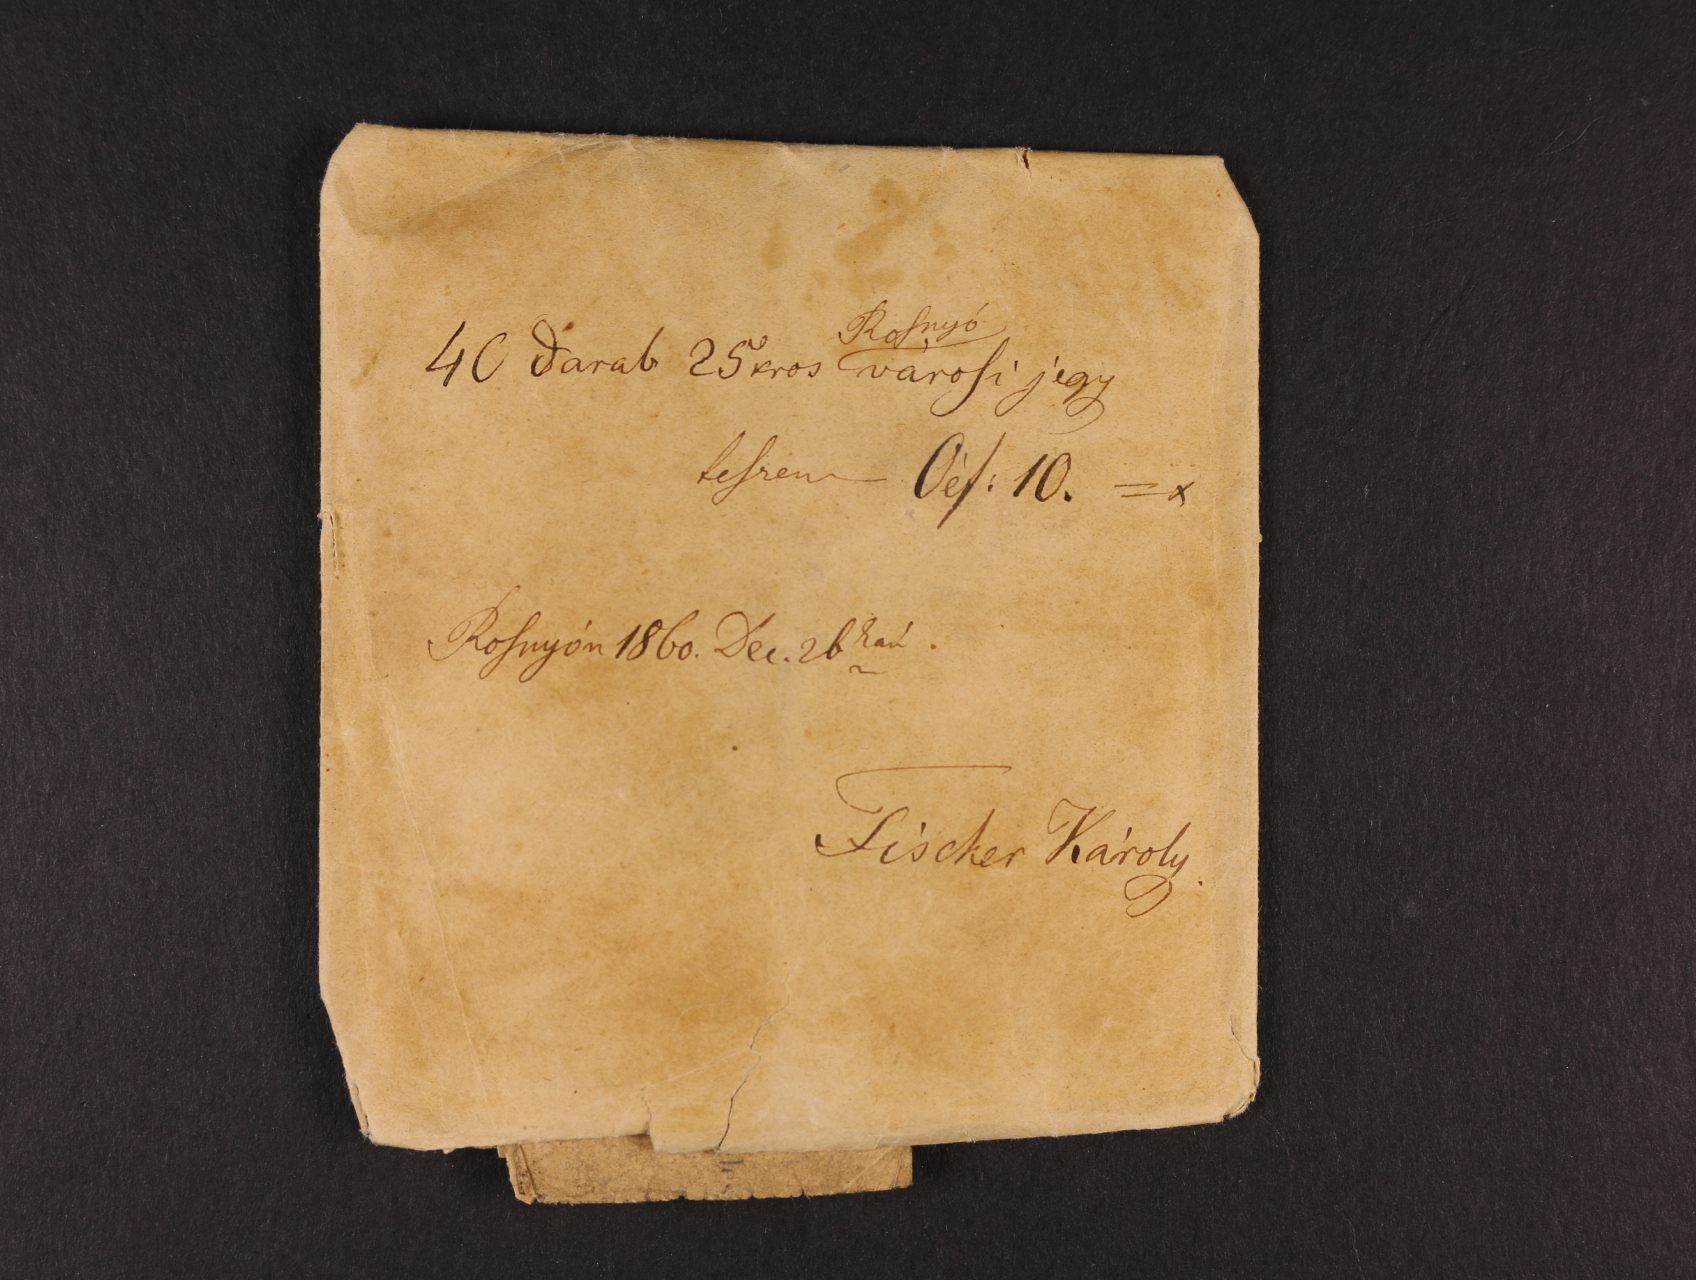 Rosnyó
40 darab 25 kros városi jegy
teszen Oéf: 10. = x
Rosnyón 1860. Dec. 26kán.
Fischer Károly.